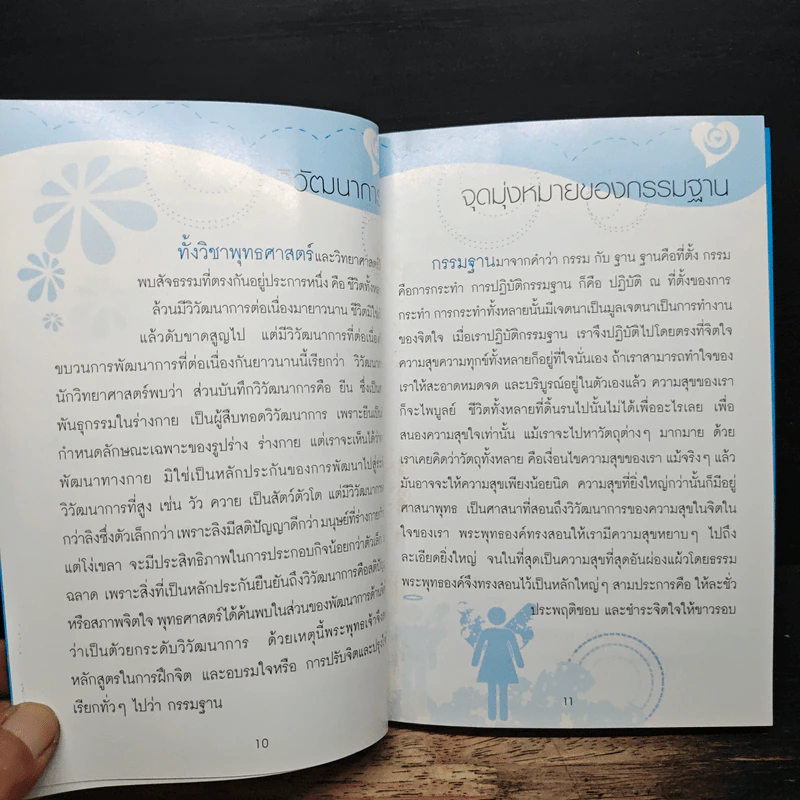 วิวัฒนาการ
ทั้งวิชาพุทธศาสตร์และวิทยาศาสตร์
พบสัจธรรมที่ตรงกันอยู่ประการหนึ่ง คือ ชีวิตทั้ง
ล้วนมีวิวัฒนาการต่อเนื่องมายาวนาน ชีวิตมิใช่
แล้วดับขาดสูญไป แต่มีวิวัฒนาการที่ต่อเนื่อง
ขบวนการพัฒนาการที่ต่อเนื่องกันยาวนานนี้เรียกว่า วิวัฒนา
นักวิทยาศาสตร์พบว่า ส่วนบันทึกวิวัฒนาการคือ ยีน ซึ่งเป็น
พันธุกรรมในร่างกาย เป็นผู้สืบทอดวิวัฒนาการ เพราะยีนเป็น
กำหนดลักษณะเฉพาะของรูปร่าง ร่างกาย แต่เราจะเห็นได้ว่า
พัฒนาทางกาย มิใช่เป็นหลักประกันของการพัฒนาไปสู่
วิวัฒนาการที่สูง เช่น วัว ควาย เป็นสัตว์ตัวโต แต่มีวิวัฒนาการ
กว่าลิงซึ่งตัวเล็กกว่า เพราะลิงมีสติปัญญาดีกว่า มนุษย์ที่ร่างกาย
แต่โง่เขลา จะมีประสิทธิภาพในการประกอบกิจน้อยกว่าตัวเล็ก
ฉลาด เพราะสิ่งที่เป็นหลักประกันยืนยันถึงวิวัฒนาการคือสติปัญ
หรือสภาพจิตใจ พุทธศาสตร์ได้ค้นพบในส่วนของพัฒนาการด้าน
ว่าเป็นตัวยกระดับวิวัฒนาการ ด้วยเหตุนี้พระพุทธเจ้าจึง
หลักสูตรในการฝึกจิต และอบรมใจหรือ การปรับจิตและปรุงใ
เรียกทั่วๆ ไปว่า กรรมฐาน
10
จุดมุ่งหมายของกรรมฐาน
กรรมฐานมาจากคำว่า กรรม กับ ฐาน ฐานคือที่ตั้ง กรรม
คือการกระทำ การปฏิบัติกรรมฐาน ก็คือ ปฏิบัติ ณ ที่ตั้งของการ
กระทำ การกระทำทั้งหลายนั้นมีเจตนาเป็นมูลเจตนาเป็นการทำงาน
ของจิตใจ เมื่อเราปฏิบัติกรรมฐาน เราจึงปฏิบัติไปโดยตรงที่จิตใจ
ความสุขความทุกข์ทั้งหลายก็อยู่ที่ใจนั่นเอง ถ้าเราสามารถทำใจของ
เราให้สะอาดหมดจด และบริบูรณ์อยู่ในตัวเองแล้ว ความสุขของเรา
ก็จะไพบูลย์ ชีวิตทั้งหลายที่ดิ้นรนไปนั้นไม่ได้เพื่ออะไรเลย เพื่อ
สนองความสุขใจเท่านั้น แม้เราจะไปหาวัตถุต่างๆ มากมาย ด้วย
เราเคยคิดว่าวัตถุทั้งหลาย คือเงื่อนไขความสุขของเรา แม้จริงๆ แล้ว
มันอาจจะให้ความสุขเพียงน้อยนิด ความสุขที่ยิ่งใหญ่กว่านั้นก็มีอยู่
ศาสนาพุทธ เป็นศาสนาที่สอนถึงวิวัฒนาการของความสุขในจิตใน
ใจของเรา พระพุทธองค์ทรงสอนให้เรามีความสุขหยาบๆ ไปถึง
ละเอียดยิ่งใหญ่ จนในที่สุดเป็นความสุขที่สุดอันผ่องแผ้วโดยธรรม
พระพุทธองค์จึงทรงสอนไว้เป็นหลักใหญ่ๆ สามประการคือ ให้ละชั่ว
ประพฤติชอบ และชำระจิตใจให้ขาวรอบ
11